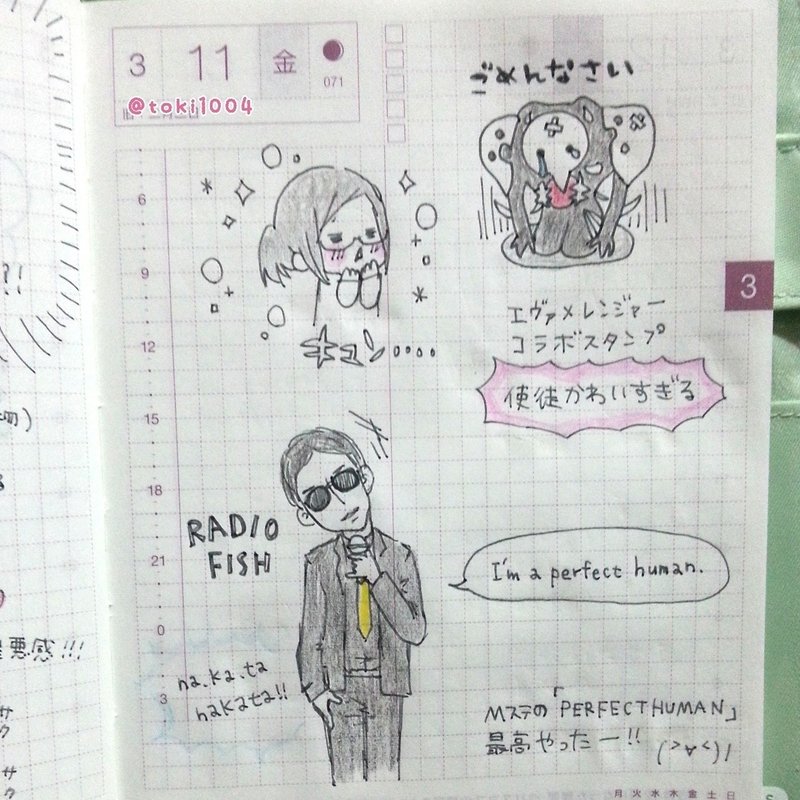 3 11 金
071
@toki1004
ごめんなさい
6
9
12
15
18
21
0
3
キュン....
エヴァ×レンジャー
コラボスタンプ
使徒かわいすぎる
3
RADIO
FISH
I'm a perfect human.
na.ka.ta
nakata!!
Mステの「PERFECTHUMAN」
最高やったー!! (>∀<)ノ
月 火 水 木 金 土 日
?!
悪感!!!
サ
ク
サ
ク